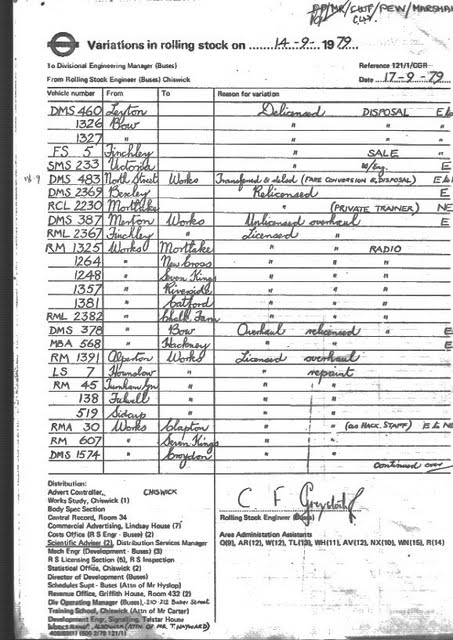 PP/MR/CWF/PEW/MARSHAM
Variations in rolling stock on 14-9-1979
To Divisional Engineering Manager (Buses) Reference 121/1/CGR
From Rolling Stock Engineer (Buses) Chiswick Date 17-9-79
Vehicle number From To Reason for variation
DMS 460 Leyton Delicensed DISPOSAL
1326 Bow " "
1327 " " "
FS 5 Finchley " SALE "
SMS 233 Victoria " E
DMS 483 North Street Works Transferred & deled (FARE CONVERSION & DISPOSAL)
DMS 2369 Bexley Relicensed E
RCL 2230 Mortlake " (PRIVATE TRAINER) NE
DMS 387 Merton Works Unlicensed overhaul E
RML 2367 Finchley " Licensed "
RM 1325 Works Mortlake " " RADIO
1264 " New Cross " "
1248 " Seven Kings " "
1357 " Riverside " "
1381 " Catford " "
RML 2382 " Chalk Farm " "
DMS 378 " Bow Overhaul relicensed E
MBA 568 " Hackney " " E
RM 1391 Alperton Works Licensed overhaul
LS 7 Hounslow " " repaint
RM 45 Turnham Gn " " "
138 Fulwell " " "
519 Sidcup " " "
RMA 30 Works Clapton " " (as HACK. STAFF)
RM 607 " Seven Kings " "
DMS 1574 " Croydon " "
Continued over
Distribution:
Advert Controller, CHISWICK
Works Study, Chiswick (1)
Body Spec Section
Central Record, Room 34
Commercial Advertising, Lindsay House (7)
Costs Office (R S Engr - Buses) (2)
Scientific Adviser (2), Distribution Services Manager
Mech Engr (Development - Buses) (3)
R S Licensing Section (6), R S Inspection
Statistical Office, Chiswick (2)
Director of Development (Buses)
Schedules Supt - Buses (Attn of Mr Hyslop)
Revenue Office, Griffith House, Room 432 (2)
Die Operating Manager (Buses), 210 212 Baker Street
Training School, Chiswick (Attn of Mr Carter)
Development Engr, Signalling, Telstar House
(ATTN OF MR T. HAYWARD)
C F
Rolling Stock Engineer (Buses)
Area Administration Assistants
Q(9), AR(12), W(12), TL(13), WH(11), AV(12), NX(10), WN(15), R(14)